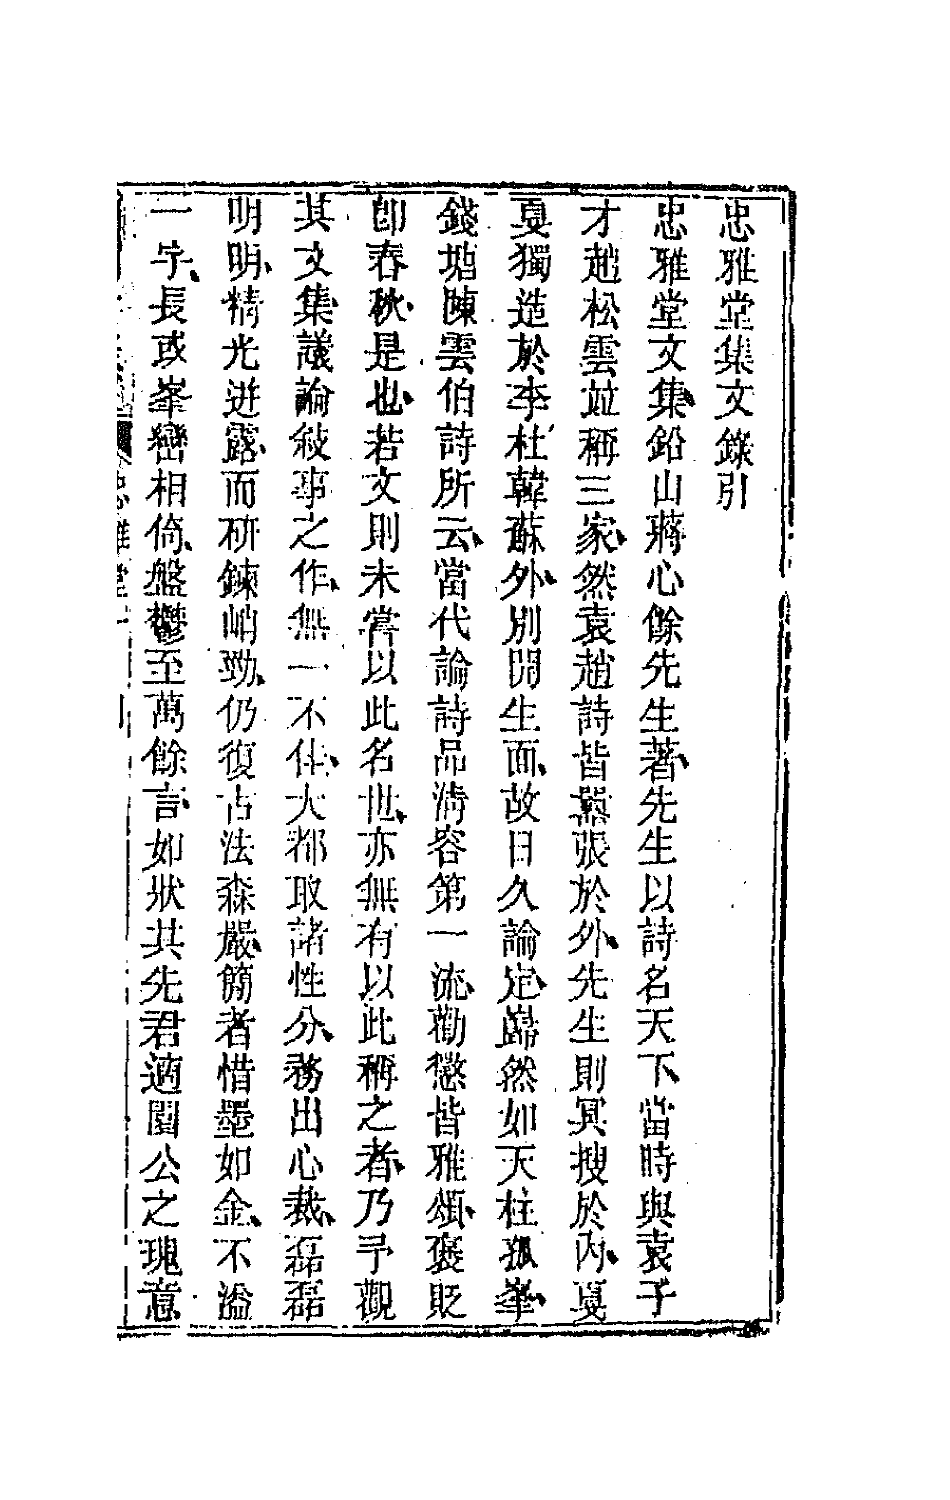 忠雅堂集文錄引
忠雅堂文集、鉛山蔣心餘先生著、先生以詩名天下、當時與袁子
才趙松雲竝稱三家、然袁趙詩皆囂張於外、先生則冥搜於內、戛
戛獨造於李杜韓蘇外、別開生面、故日久論定、巋然如天柱孤峯、
錢塘陳雲伯詩所云、當代論詩品清容第一流、勸懲皆雅頌、褒貶
卽春秋、是也、若文則未嘗以此名世、亦無有以此稱之者、乃予觀
其文集、議論敍事之作、無一不佳、大都取諸性分、務出心裁、磊磊
明明、精光迸露、而硏鍊峭勁、仍復古法森嚴、簡者惜墨如金、不溢
一字、長或峯巒相倚、盤鬱至萬餘言、如狀其先君適園公之瑰意